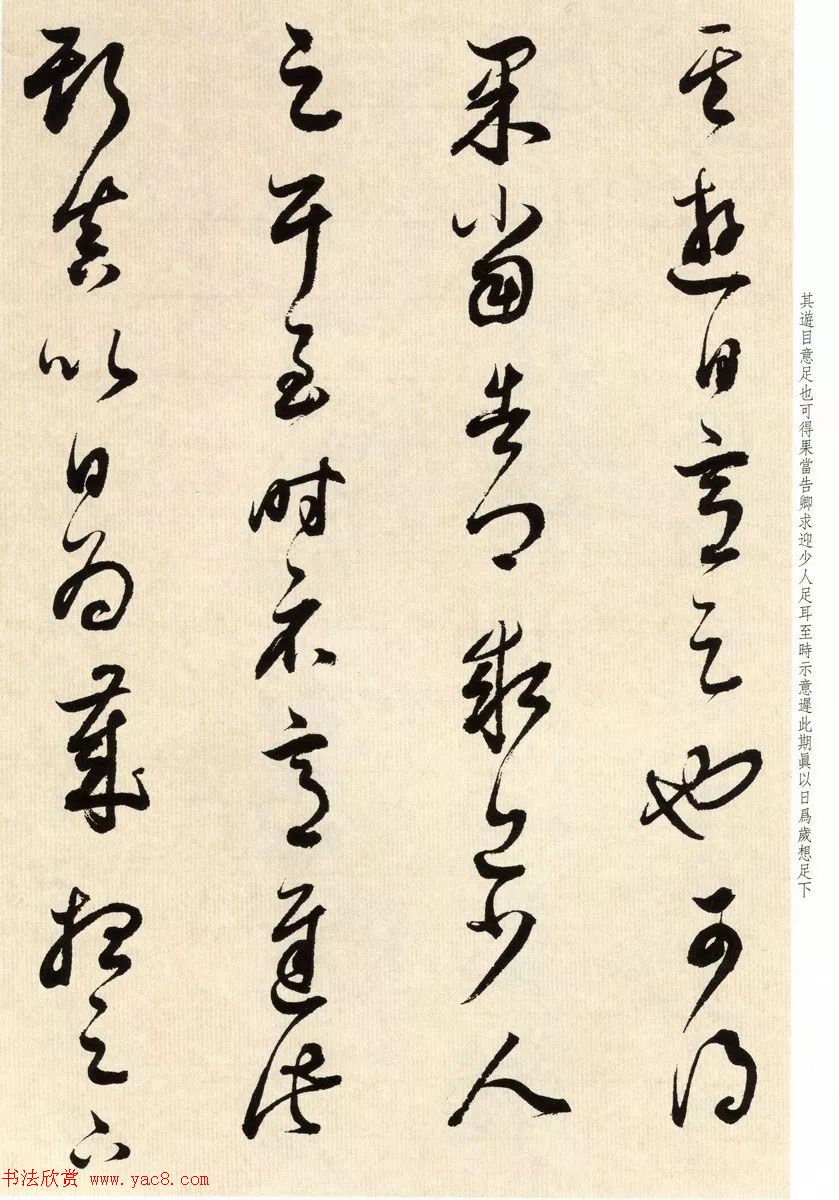 其遊目意足也可得
果當告卿求迎少人
足耳至時示意遲此
期真以日為歲想足下
其遊目意足也可得果當告卿求迎少人足耳至時示意遲此期眞以日爲歲想足下
书法欣赏 www.yac8.com